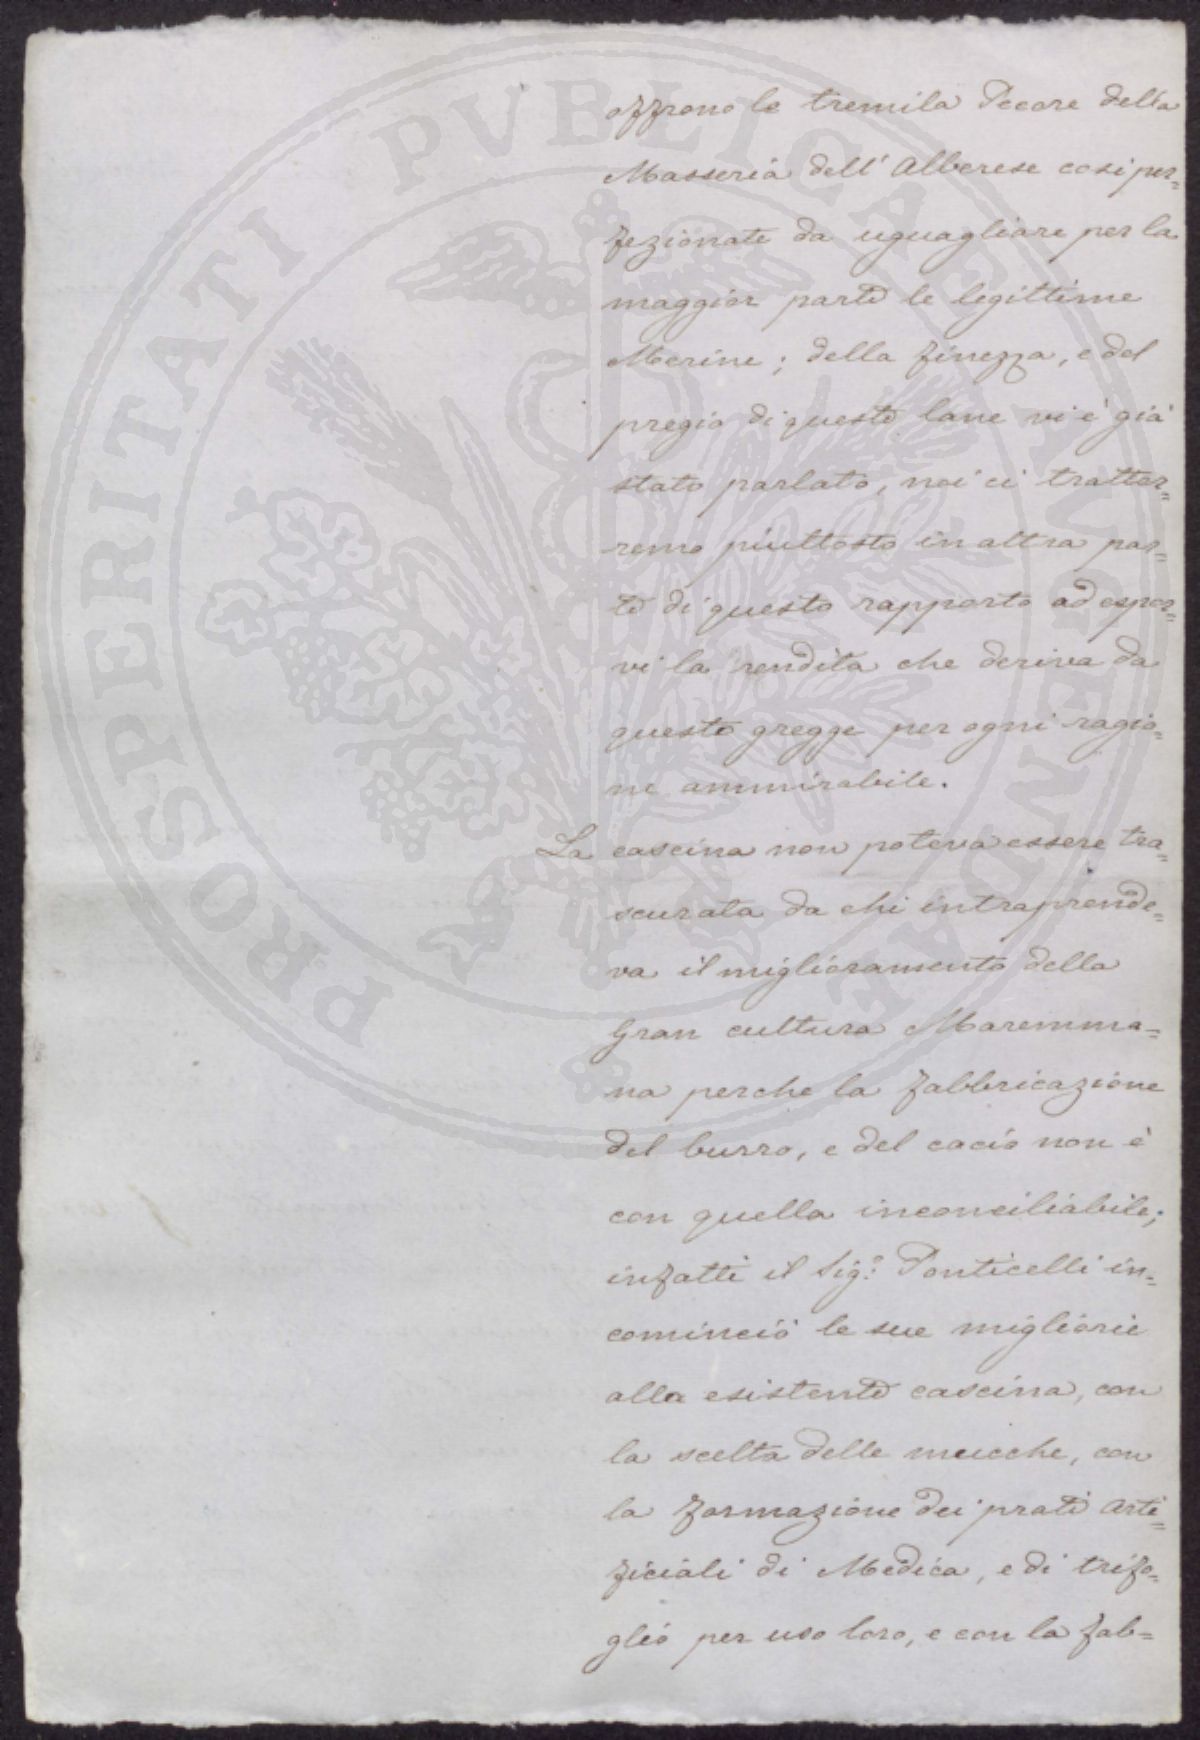 offrono le tremila Pecore della
Masseria dell' Alberese cosi per=
fezionate da uguagliare per la
maggior parte le legittime
Merine; della finezza, e del
pregio di queste lane vi è già
stato parlato, noi ci tratter=
remo piuttosto in altra par=
te di questo rapporto ad espor=
vi la rendita che deriva da
questo gregge per ogni ragio=
ne ammirabile.
La cascina non poteva essere tra=
scurata da chi intraprende=
va il miglioramento della
Gran cultura Maremma=
na perche la fabbricazione
del burro, e del cacio non è
con quella inconciliabile;
infatti il Sig.e Ponticelli in=
cominciò le sue migliorie
alla esistente cascina, con
la scelta delle mucche, con
la formazione dei prati arti=
ficiali di Medica, e di trifo=
glio per uso loro, e con la fab=
PROSPERITATI PVBLICAE AVGENDAE